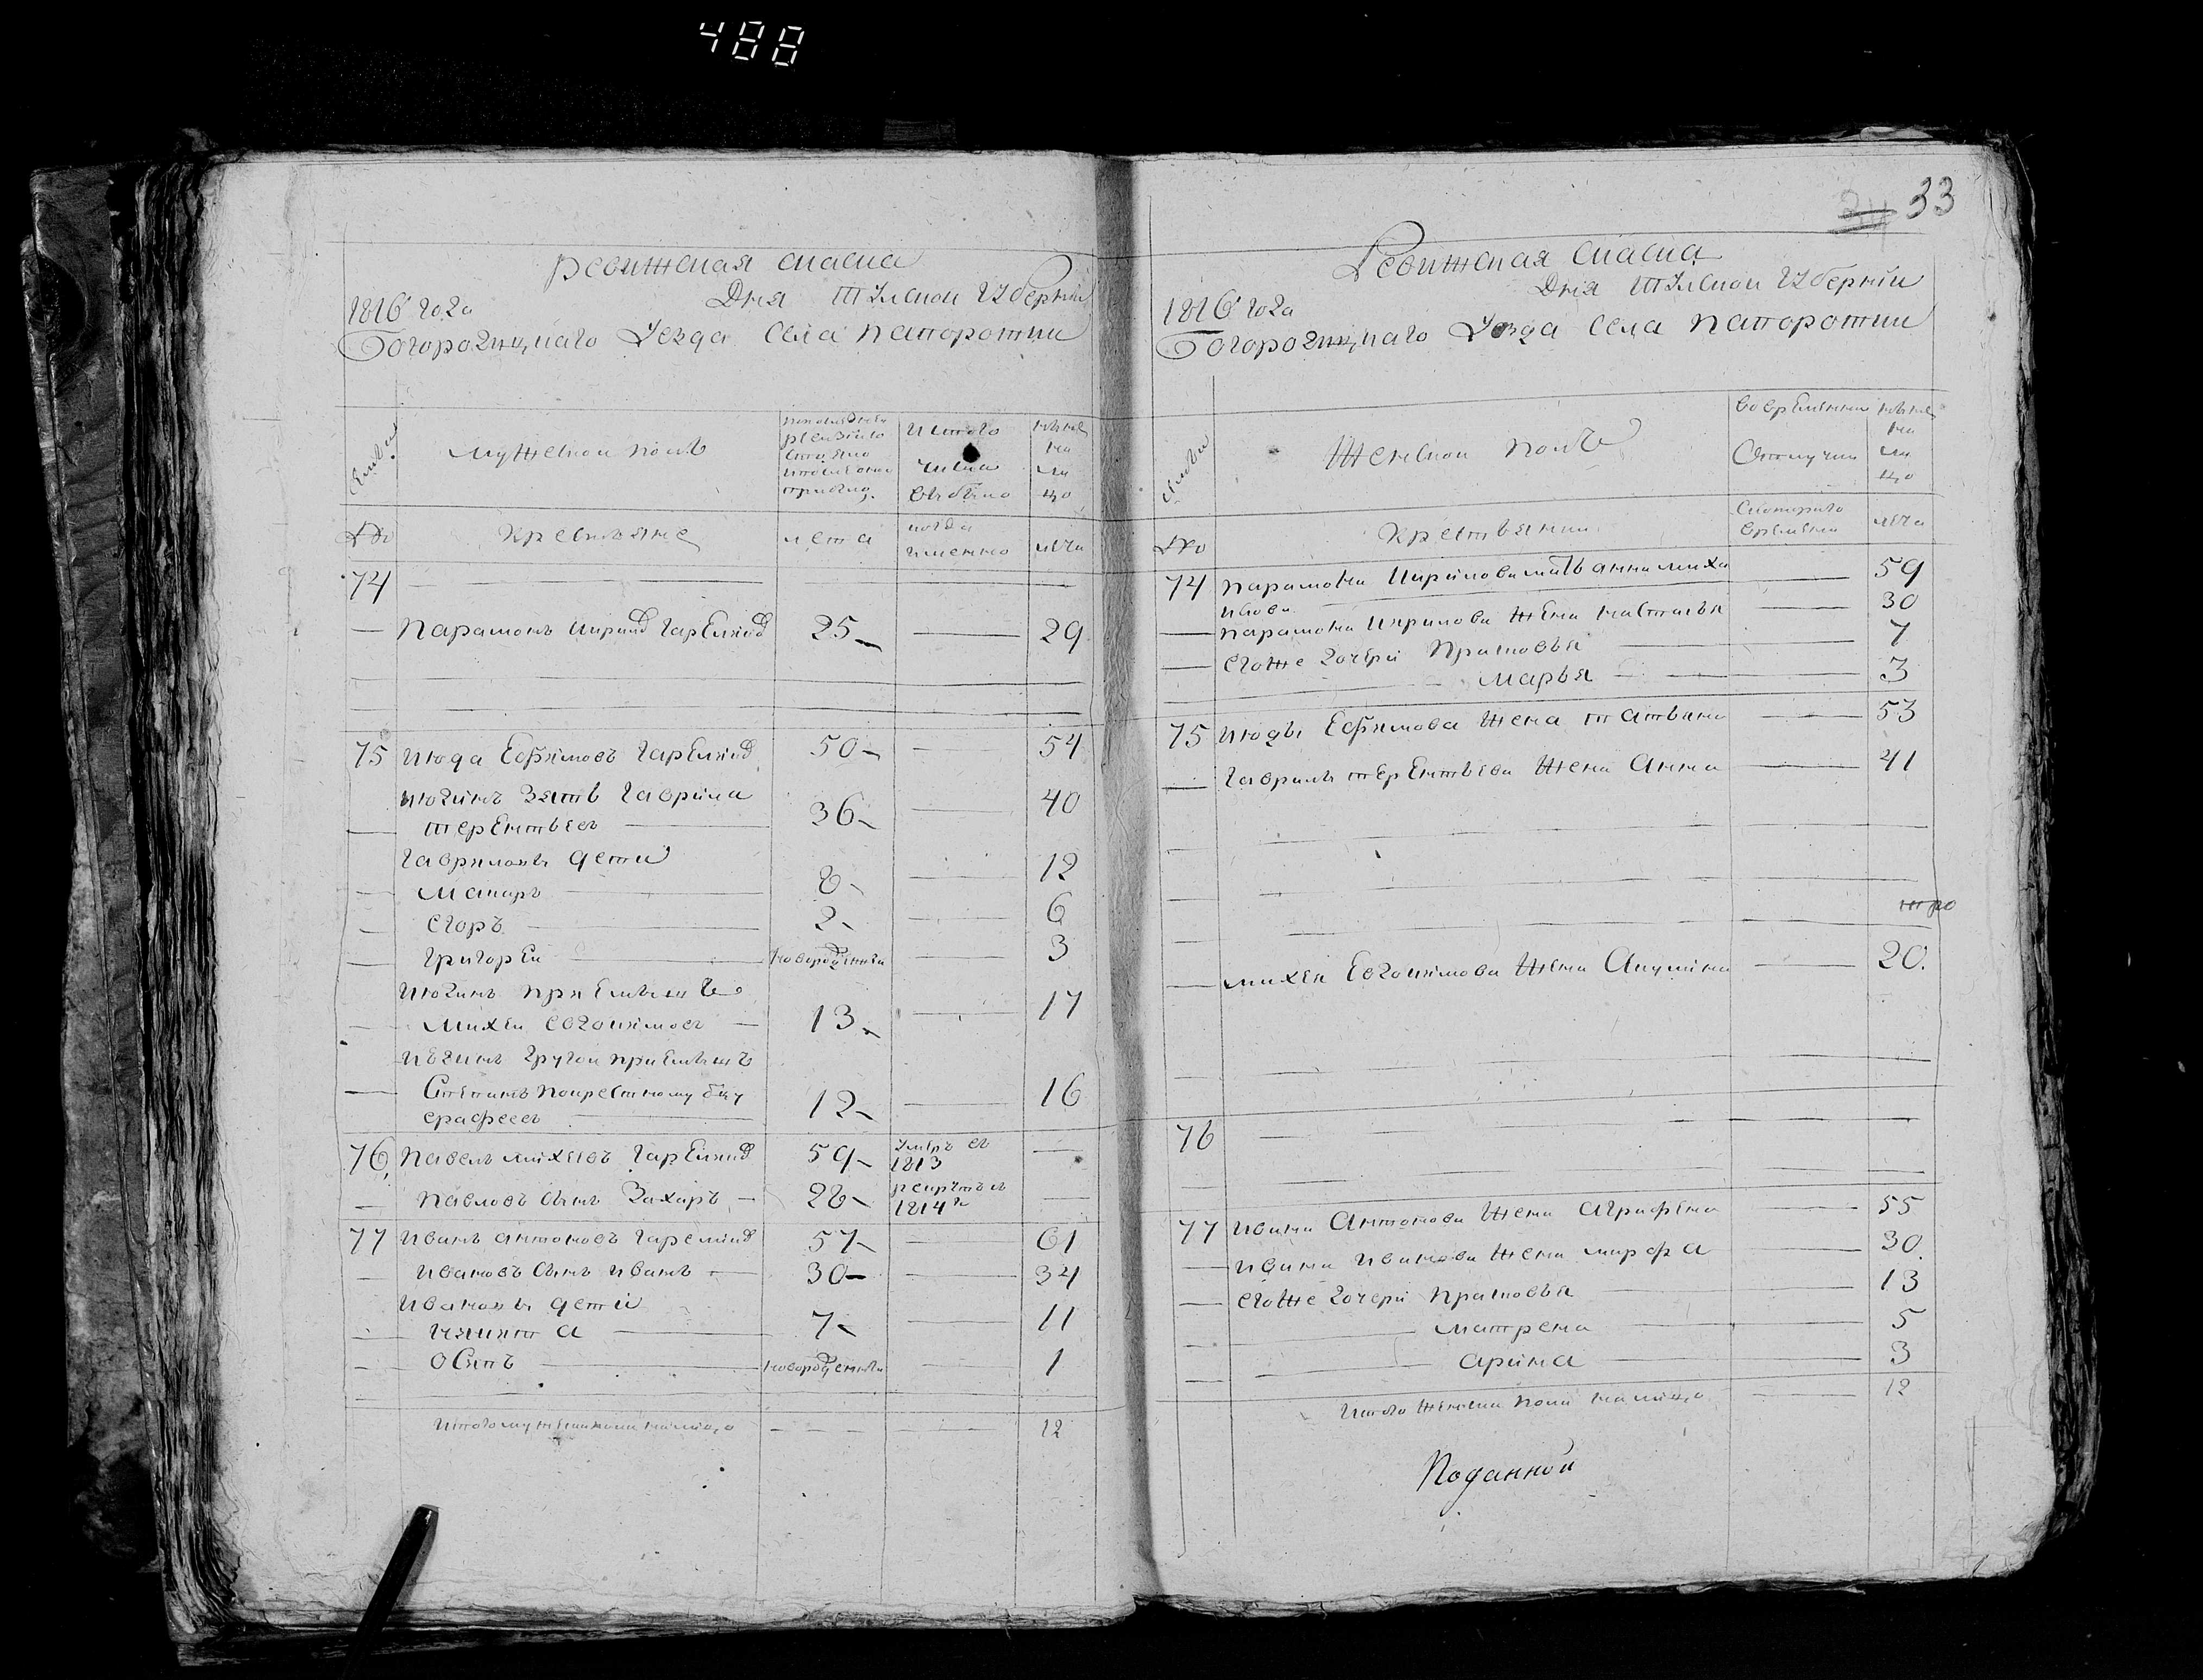 488
ревижская скаска
1816 года Дня Тулской губернии
Богородицкаго Уезда Села папоротки
Семьи
мужеской полъ
изтого числа выбыло
ныне на лицо
№о
крестьяне
лета
когда именно
лета
74
Парамонъ Кириловъ Гарелкинъ 25 29
75 Июда Ефимовъ 50 54
Июдинъ Зять Гаврила
терентьевъ 36 40
Гавриловы дети
Макаръ 8 12
Егоръ 2 6
Григорей новорожденный 3
Июдинъ приемышъ
Михей Евдокимовъ 13 17
Июдинъ другой приемышъ
Степанъ покрестному отцу
ерафеевъ 12 16
76 Павелъ михеевъ 59 Умръ въ 1813
Павловъ сынъ Захаръ 28 рекрутъ въ 1814 го
77 Иванъ антоновъ 57 61
Ивановъ сынъ Иванъ 30 34
Ивановы дети
Никита 7 11
Осипъ новорожденный 1
Итого мужеска пола налицо 12
34 33
Ревижская скаска
1816 года Дня Тулской губернии
Богородицкаго Уезда Села папоротки
Семьи
Женской полъ
во временной отлучки
ныне на лицо
№о
крестьянки
скотораго времени
лета
74 парамона Кирилова мать анна миха 59
илова
парамона Кирилова жена наталья 30
егоже дочери Прасковья 7
Марья 3
75 Июды Ефимова жена татьяна 53
Гаврилы терентьева жена Анна 41
михея Евдокимова жена Акулина 20.
76
77 Ивана Антонова жена Аграфена 55
Ивана Иванова жена марфа 30.
егоже дочери прасковья 13
матрена 5
арина 3
Итого женска пола налицо 12
Поданной